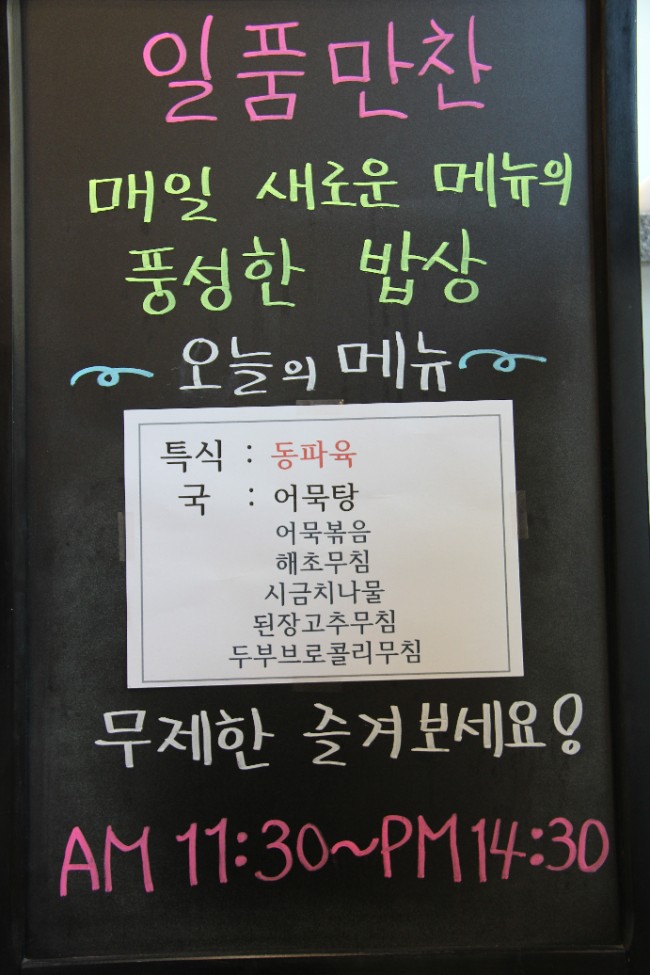 일품만찬
매일 새로운 메뉴의
풍성한 밥상
오늘의 메뉴
특식 : 동파육
국 : 어묵탕
어묵볶음
해초무침
시금치나물
된장고추무침
두부브로콜리무침
무제한 즐겨보세요!
AM 11:30~PM 14:30